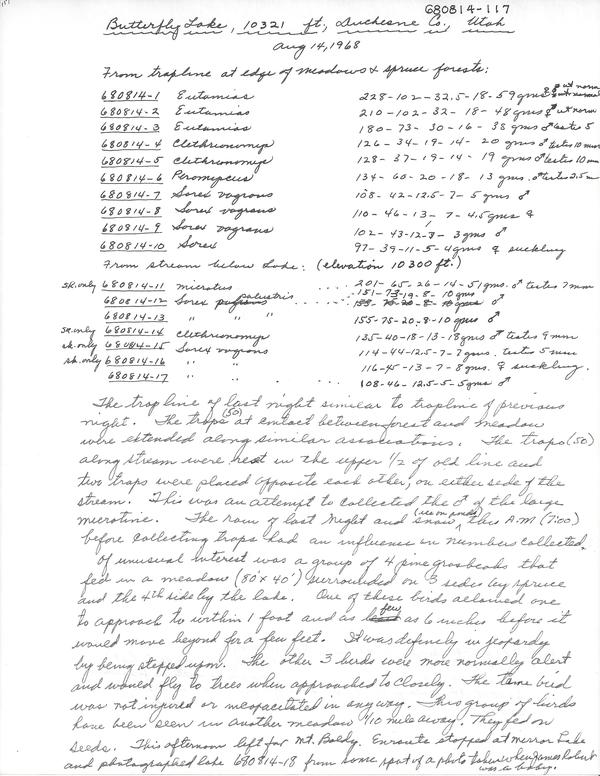 151
680814-117
Butterfly Lake, 10321 ft., Duchesne Co., Utah
Aug 14, 1968
From trapline at edge of meadows & spruce forests:
680814-1 Eutamias 228-102-32.5-18-59 gms ♀ ut norm
680814-2 Eutamias 210-102-32-18-48 gms ♀ ut norm
680814-3 Eutamias 180-73-30-16-38 gms ♂ testes 5
680814-4 Clethrionomys 126-34-19-14-20 gms ♂ testes 10 mm
680814-5 Clethrionomys 128-37-19-14-19 gms ♂ testes 10 mm
680814-6 Peromyscus 134-60-20-18-13 gms. ♂ testes 2.5 m
680814-7 Sorex vagrans 108-42-12.5-7-5 gms ♂
680814-8 Sorex vagrans 110-46-13-7-4.5 gms ♀
680814-9 Sorex vagrans 102-43-12-8-3 gms ♂
680814-10 Sorex 97-39-11-5-4 gms ♀ suckling
From stream below Lake: (elevation 10300 ft.)
sk. only 680814-11 Microtus .... 201-65-26-14-51 gms. ♂ testes 7 mm
680814-12 Sorex palustris .... 151-73-19-8-10 gms ♂
680814-13 " " 155-75-20-8-10 gms ♂
sk. only 680814-14 Clethrionomys 135-40-18-13-18 gms ♂ testes 9 mm
sk. only 680814-15 Sorex vagrans 114-44-12.5-7-7 gms. testes 5 mm
sk. only 680814-16 " " 116-45-13-7-8 gms. ♀ suckling.
680814-17 " " ... 108-46-12.5-5-5 gms ♂
The trap line of last night similar to trapline of previous
night. The traps (50) at contact between forest and meadow
were extended along similar associations. The traps (50)
along stream were reset in the upper 1/2 of old line and
two traps were placed opposite each other, on either side of the
stream. This was an attempt to collected the ♂ of the large
microtine. The rain of last night and snow (ice on ponds) this A.M. (7:00)
before collecting traps had an influence on numbers collected.
Of unusual interest was a group of 4 pine grosbeaks that
fed in a meadow (80' x 40') surrounded on 3 sides by spruce
and the 4th side by the lake. One of these birds allowed one
to approach to within 1 foot and as few as 6 inches before it
would move beyond for a few feet. It was definely in jeopardy
by being stepped upon. The other 3 birds were more normally alert
and would fly to trees when approached to closely. The tame bird
was not injured or incapacitated in any way. This group of birds
have been seen in another meadow 1/10 mile away. They fed on
seeds. This afternoon left for Mt. Baldy. Enroute stopped at Mirror Lake
and photographed lake 680814-18 from same spot of a photo taken when James Robert
was a baby.